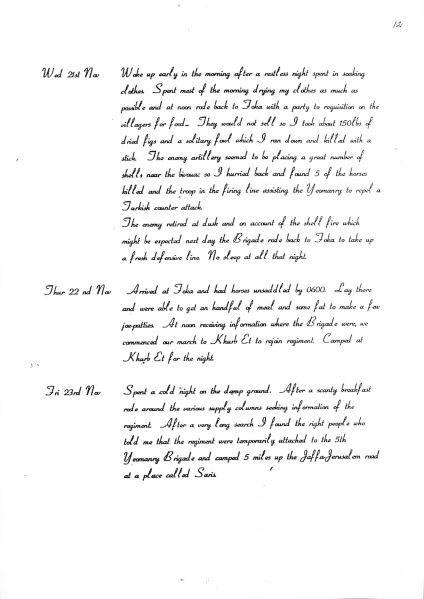 12
Wed 21st Nov Woke up early in the morning after a restless night spent in soaking
clothes. Spent most of the morning drying my clothes as much as
possible and at noon rode back to Foka with a party to requisition on the
villagers for food. They would not sell so I took about 150lbs of
dried figs and a solitary fowl which I ran down and killed with a
stick. The enemy artillery seemed to be placing a great number of
shells near the bivouac so I hurried back and found 5 of the horses
killed and the troop in the firing line assisting the Yeomanry to repel a
Turkish counter attack.
The enemy retired at dusk and on account of the shell fire which
might be expected next day the Brigade rode back to Foka to take up
a fresh defensive line. No sleep at all that night.
Thur 22 nd Nov Arrived at Foka and had horses unsaddled by 0600. Lay there
and were able to get an handful of meal and some fat to make a few
joe-patties. At noon receiving information where the Brigade were, we
commenced our march to Khurb Et to rejoin regiment. Camped at
Khurb Et for the night.
Fri 23rd Nov Spent a cold night on the damp ground. After a scanty breakfast
rode around the various supply columns seeking information of the
regiment. After a very long search I found the right people who
told me that the regiment were temporarily attached to the 5th
Yeomanry Brigade and camped 5 miles up the Jaffa-Jerusalem road
at a place called Saris.